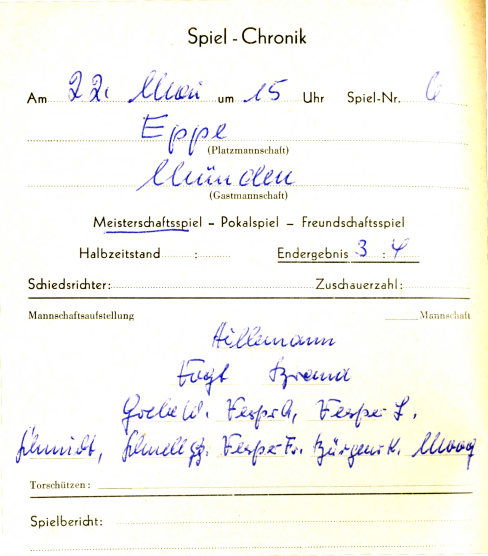 Spiel - Chronik
Am 22. Mai um 15 Uhr Spiel-Nr. 6
Eppe
(Platzmannschaft)
Münden
(Gastmannschaft)
Meisterschaftsspiel – Pokalspiel – Freundschaftsspiel
Halbzeitstand : Endergebnis 3 : 4
Schiedsrichter: Zuschauerzahl:
Mannschaftsaufstellung Mannschaft
Hillemann
Vogt Brand
W. Vesper A, Vesper L.
Schmidt, Vesper Fr. Moog
Torschützen:
Spielbericht: